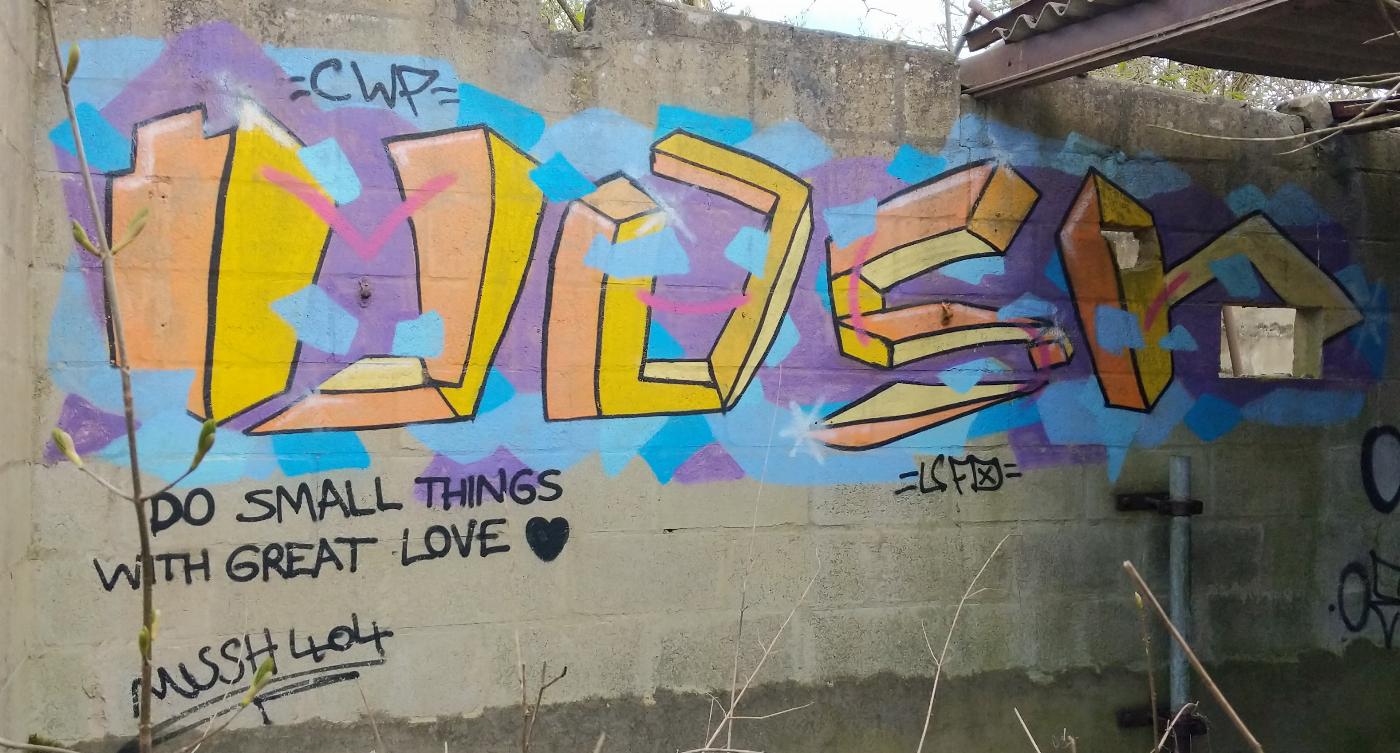 =CWP=
=LSF☒=
DO SMALL THINGS
WITH GREAT LOVE ♥
MUSSH 404